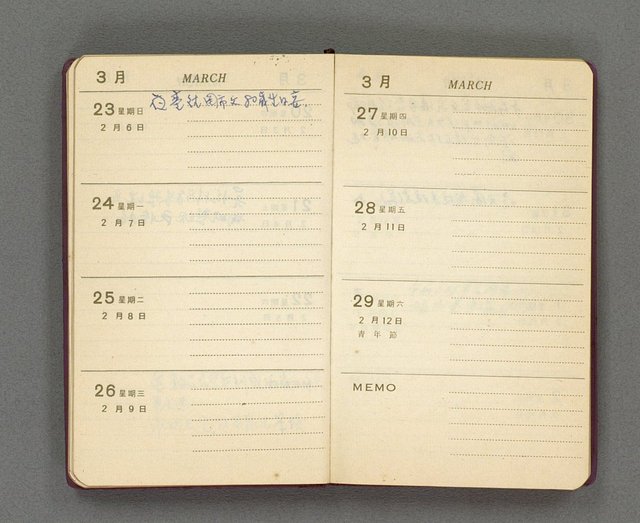 3 月 MARCH
23 星期日
2 月 6 日
24 星期一
2 月 7 日
25 星期二
2 月 8 日
26 星期三
2 月 9 日
3 月 MARCH
27 星期四
2 月 10 日
28 星期五
2 月 11 日
29 星期六
2 月 12 日
青年節
MEMO